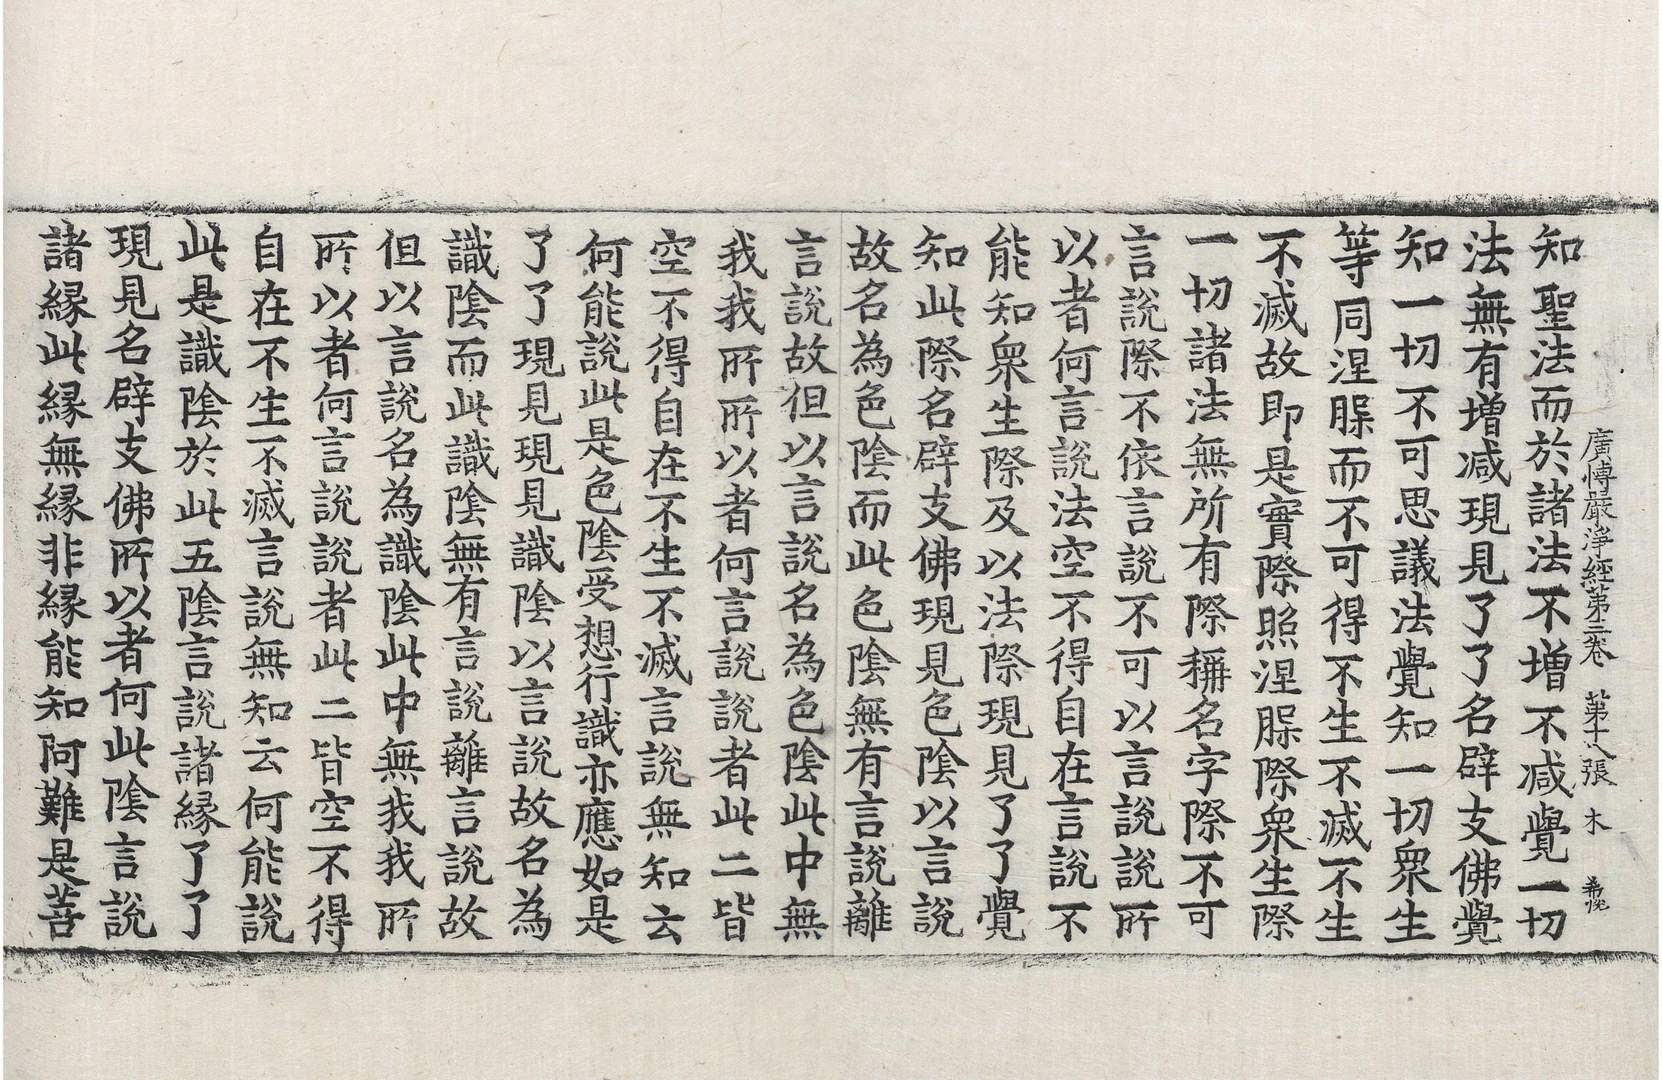 廣博嚴淨經第三卷 第十八張 木
知聖法而於諸法不增不減覺一切
法無有增減現見了了名辟支佛覺
知一切不可思議法覺知一切衆生
等同涅槃而不可得不生不滅不生
不滅故即是實際照涅槃際衆生際
一切諸法無所有際稱名字際不可
言說際不依言說不可以言說說所
以者何言說法空不得自在言說不
能知衆生際及以法際現見了了覺
知此際名辟支佛現見色陰以言說
故名為色陰而此色陰無有言說離
言說故但以言說名為色陰此中無
我我所所以者何言說說者此二皆
空不得自在不生不滅言說無知云
何能說此是色陰受想行識亦應如是
了了現見現見識陰以言說故名為
識陰而此識陰無有言說離言說故
但以言說名為識陰此中無我我所
所以者何言說說者此二皆空不得
自在不生不滅言說無知云何能說
此是識陰於此五陰言說諸緣了了
現見名辟支佛所以者何此陰言說
諸緣此緣無緣非緣能知阿難是菩